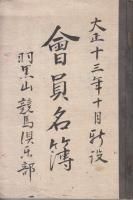 大正十三年十月新設
會員名簿
羽黒山競馬倶楽部